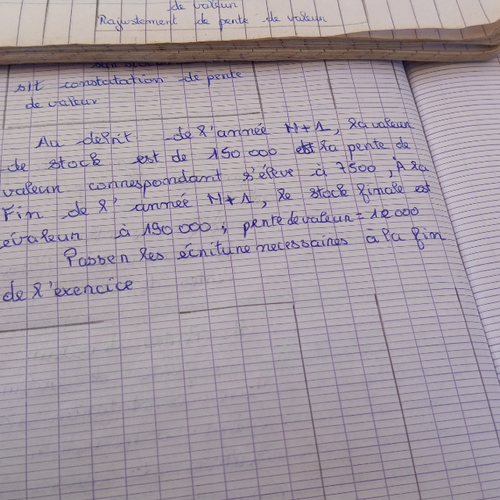 de valeur
Rajustement de pente de valeur
s/t constatation de pente
de valeur
Au debit de l'année N+1, la valeur
de stock est de 150 000 la pente de
valeur correspondant s'éleve à 7500, À la
Fin de l'année N+1, le stock finale est
évaleur à 190 000; pente de valeur =
Passer les écriture necessaires à la fin
de l'exercice